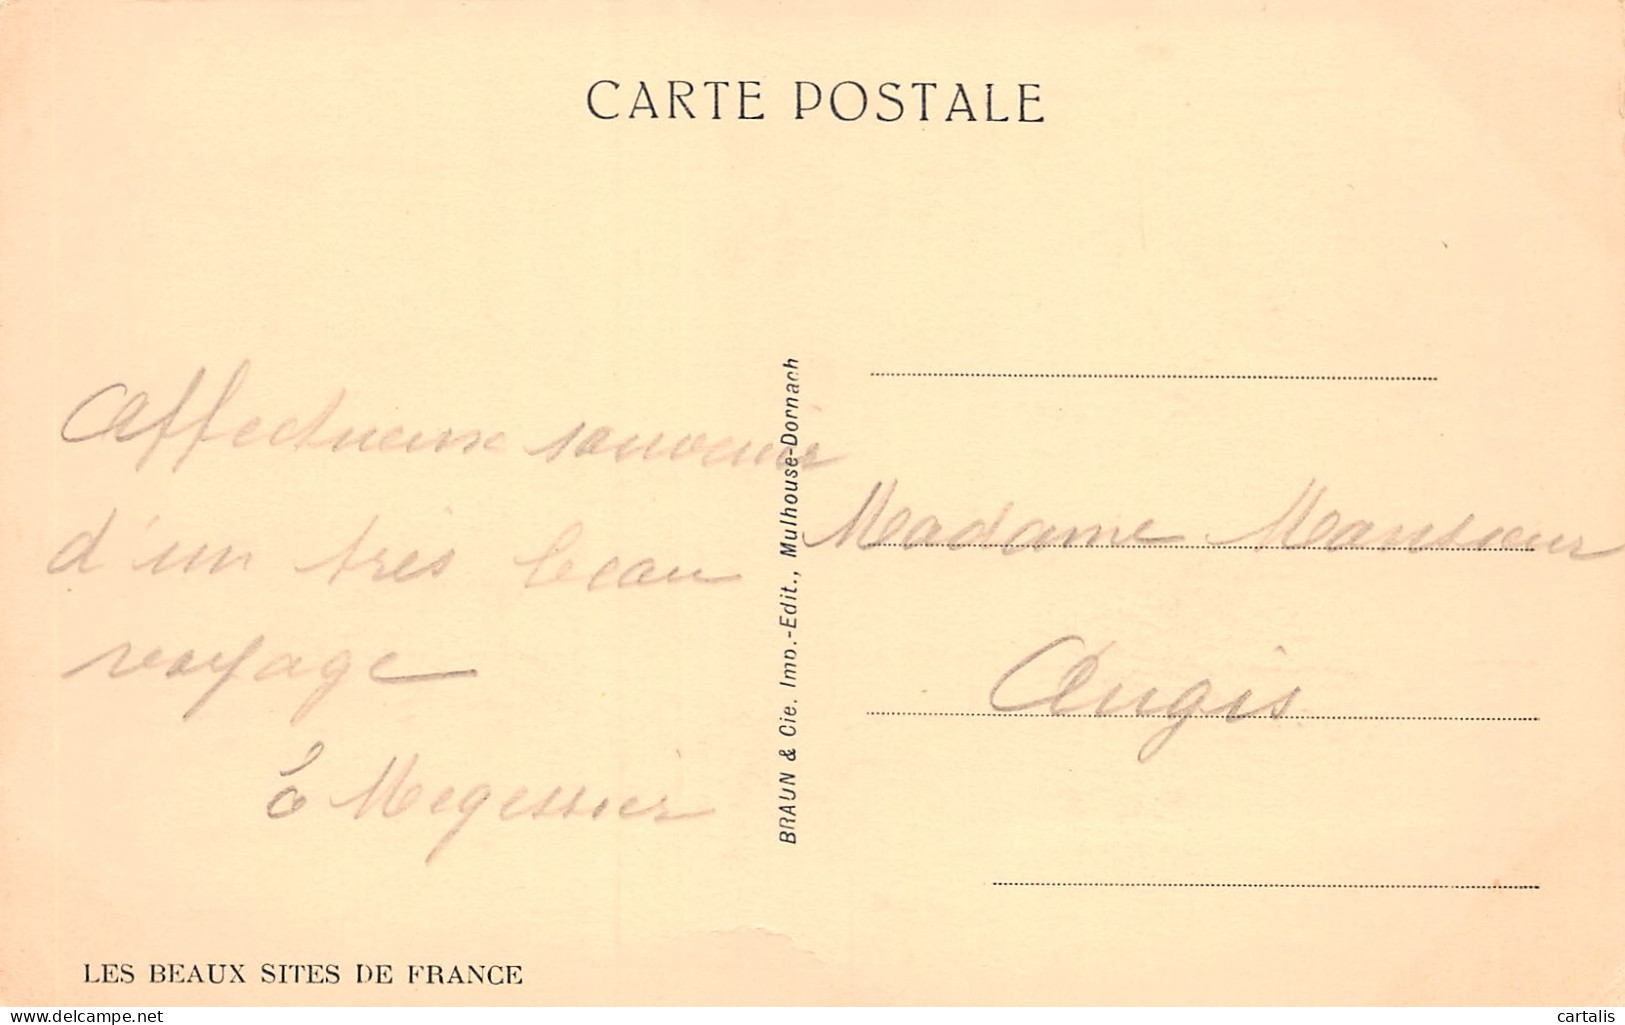 CARTE POSTALE
Affectueux souvenir
d'un très beau
voyage
Megessier
BRAUN & Cie. Imp.-Edit., Mulhouse-Dornach
Madame
Augis
LES BEAUX SITES DE FRANCE
www.delcampe.net
cartalis